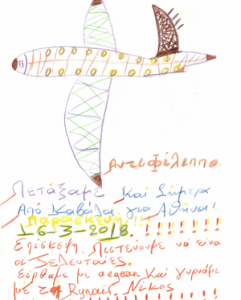 Αντιφίλιππο.
Πετάξαμε και Σήμερα
Από Καβάλα για Αθήνα!
Παρασκευή
16-3-2018.!!!!!!!
Επίσκεψη. Πιστεύουμε να είναι
οι τελευταίες.
Ερθαμε με aegean και γυρνάμε
με τη Ryanair. Νίκος